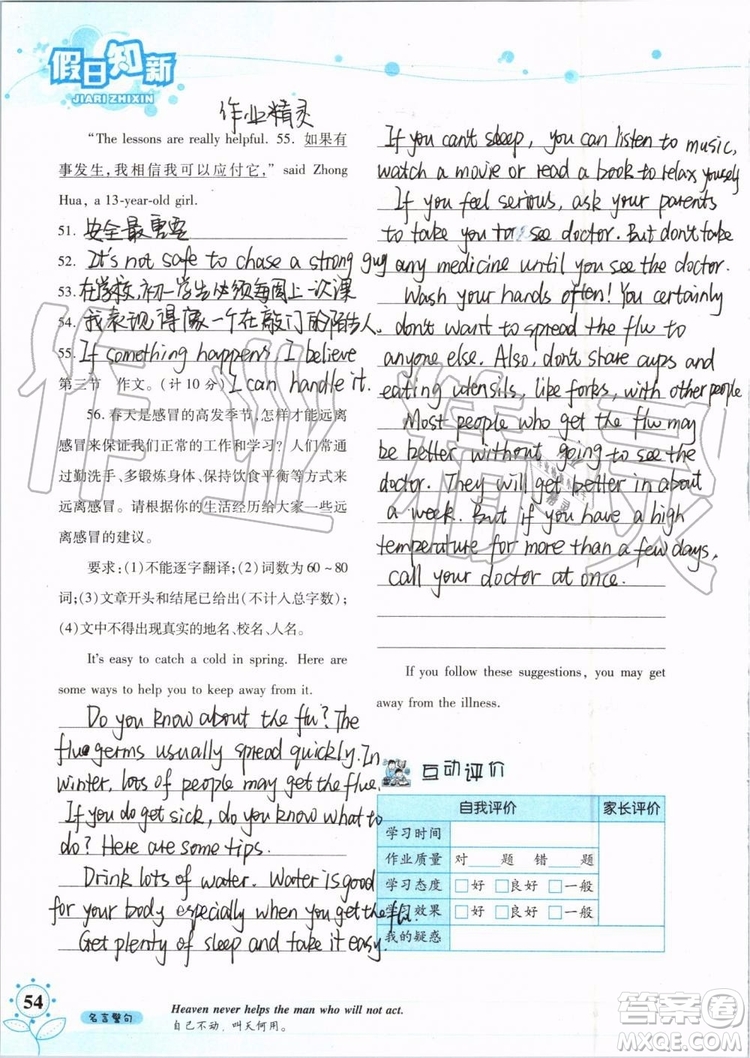 假日知新
JIARI ZHIXIN
作业精灵
"The lessons are really helpful. 55. 如果有
事发生,我相信我可以应付它," said Zhong
Hua, a 13-year-old girl.
51. 安全最重要
52. It's not safe to chase a strong guy
53. 在学校,初一学生必须每周上一次课
54. 我表现得像一个在敲门的陌生人.
55. If something happens, I believe
I can handle it.
第三节 作文。(计10分)
56. 春天是感冒的高发季节,怎样才能远离
感冒来保证我们正常的工作和学习? 人们常通
过勤洗手、多锻炼身体、保持饮食平衡等方式来
远离感冒。请根据你的生活经历给大家一些远
离感冒的建议。
要求:(1)不能逐字翻译;(2)词数为60~80
词;(3)文章开头和结尾已给出(不计入总字数);
(4)文中不得出现真实的地名、校名、人名。
It's easy to catch a cold in spring. Here are
some ways to help you to keep away from it.
Do you know about the flu? The
flue germs usually spread quickly. In
winter, lots of people may get the flue.
If you do get sick, do you know what to
do? Here are some tips.
Drink lots of water. Water is good
for your body especially when you get the flu.
Get plenty of sleep and take it easy.
If you can't sleep, you can listen to music,
watch a movie or read a book to relax youself
If you feel serious, ask your parents
to take you to see doctor. But don't take
any medicine until you see the doctor.
Wash your hands often! You certainly
don't want to spread the flu to
anyone else. Also, don't share cups and
eating utensils, like forks, with other people
Most people who get the flu may
be better without going to see the
doctor. They will get better in about
a week. But if you have a high
temperature for more than a few days,
call your doctor at once.
If you follow these suggestions, you may get
away from the illness.
互动评价
自我评价 家长评价
学习时间
作业质量 对____题 错____题
学习态度 □好 □良好 □一般
学习效果 □好 □良好 □一般
我的疑惑
54
名言警句
Heaven never helps the man who will not act.
自己不动,叫天何用。
作业精灵
答案圈
MXQE.COM